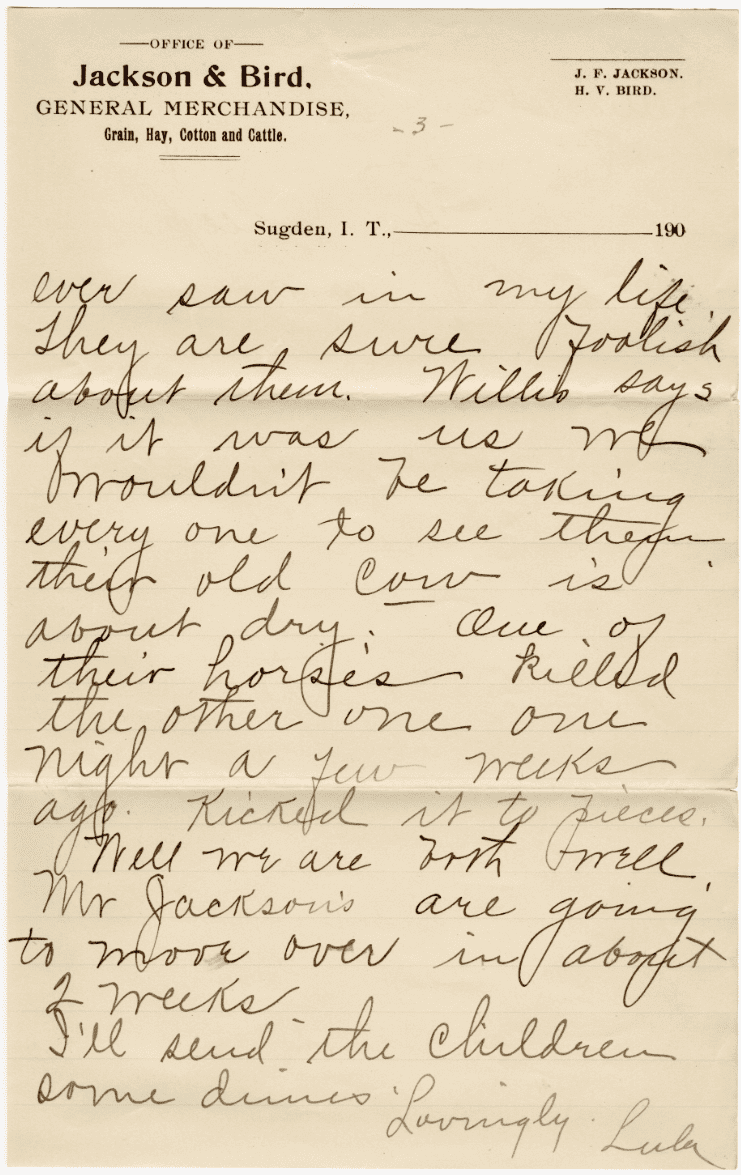 OFFICE OF
Jackson & Bird,
GENERAL MERCHANDISE,
Grain, Hay, Cotton and Cattle.
J. F. JACKSON.
H. V. BIRD.
- 3 -
Sugden, I. T., 190
ever saw in my life
They are sure foolish
about them. Willis says
if it was us we
wouldn't be taking
every one to see them
their old cow is
about dry. - One of
their horses killed
the other one one
night a few weeks
ago. Kicked it to pieces.
Well we are both well
Mr Jackson's are going
to move over in about
2 weeks
I'll send the children
some dimes.
Lovingly Lula